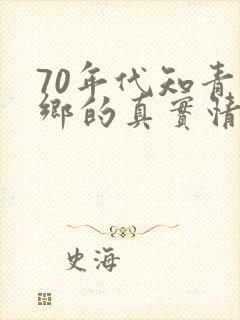 70年代知青
鄉的真實情
史海